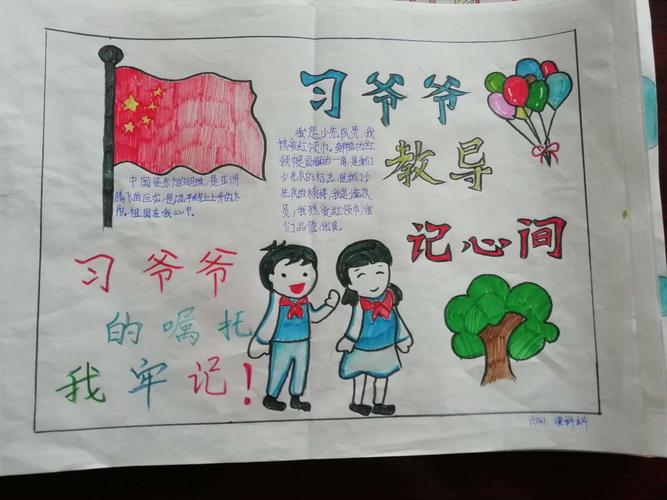 习爷爷
教导
记心间
我是少先队员,我
热爱红领巾。鲜艳的红
领巾是国旗的一角,是我们
少先队的标志,是我们少
先队的,我是少先队
员,我热爱红领巾,我
们品德优良。
中国是东方的明珠,是亚洲
腾飞的巨龙,是地平线上上升的太
阳。祖国在我心中。
习爷爷
的嘱托
我牢记!